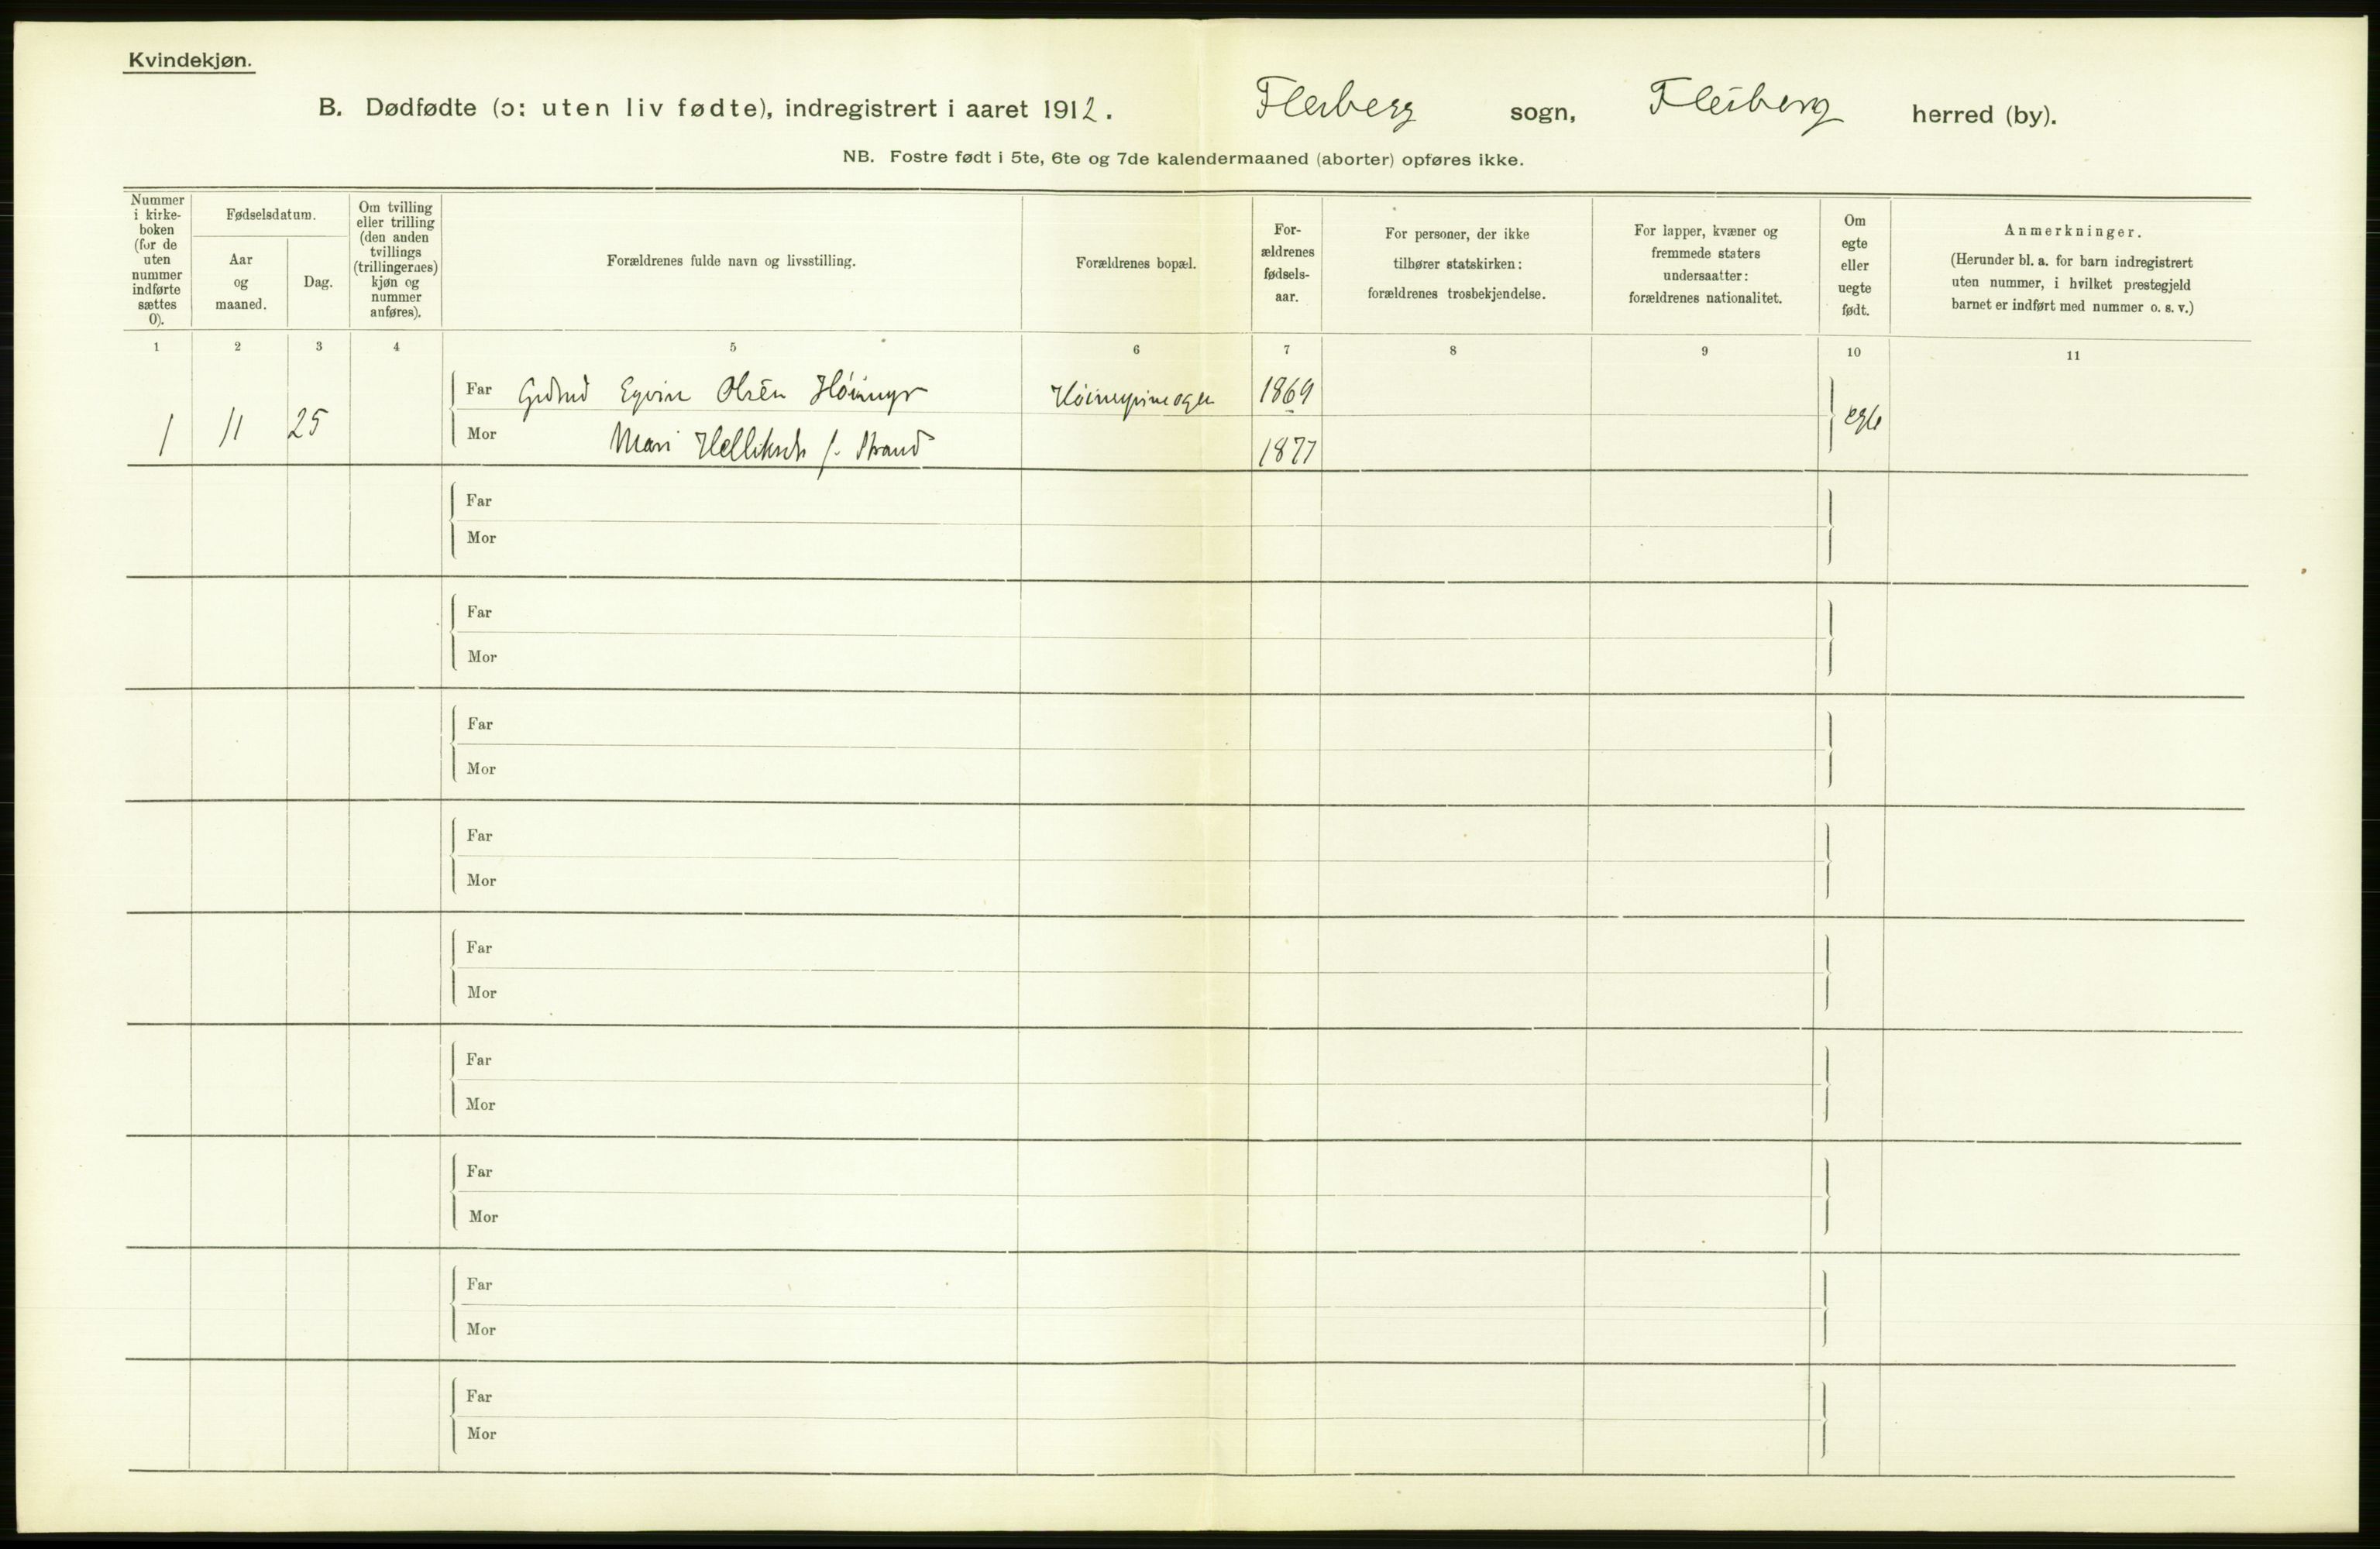 Kvindekjøn.
B. Dødfødte (ɔ: uten liv fødte), indregistrert i aaret 1912. Flesberg sogn, Flesberg herred (by).
NB. Fostre født i 5te, 6te og 7de kalendermaaned (aborter) opføres ikke.
Nummer
i kirke-
boken
(for de
uten
nummer
indførte
sættes
0).
Fødselsdatum.
Aar
og
maaned.
Dag.
Om tvilling
eller trilling
(den anden
tvillings
(trillingernes)
kjøn og
nummer
anføres).
Forældrenes fulde navn og livsstilling.
Forældrenes bopæl.
For-
ældrenes
fødsels-
aar.
For personer, der ikke
tilhører statskirken:
forældrenes trosbekjendelse.
For lapper, kvæner og
fremmede staters
undersaatter:
forældrenes nationalitet.
Om
egte
eller
uegte
født.
Anmerkninger.
(Herunder bl. a. for barn indregistrert
uten nummer, i hvilket prestegjeld
barnet er indført med nummer o. s. v.)
1 2 3 4 5 6 7 8 9 10 11
Far Olsen 1869
1 11 25 egte
Mor Mari f. Strand 1877
Far
Mor
Far
Mor
Far
Mor
Far
Mor
Far
Mor
Far
Mor
Far
Mor
Far
Mor
Far
Mor